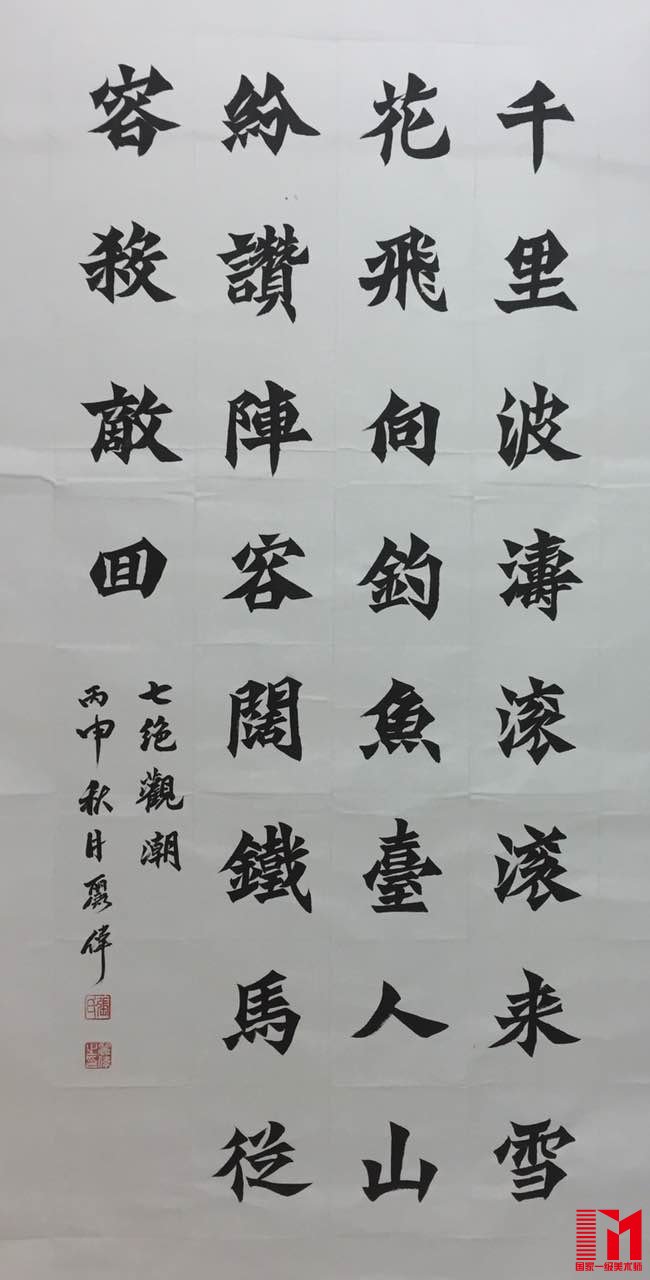 千里波濤滚滚来雪
花飛向釣魚臺人山
紛讚陣容闊鐵馬從
容殺敵回
七绝觀潮
丙申秋月偉
国家一级美术师